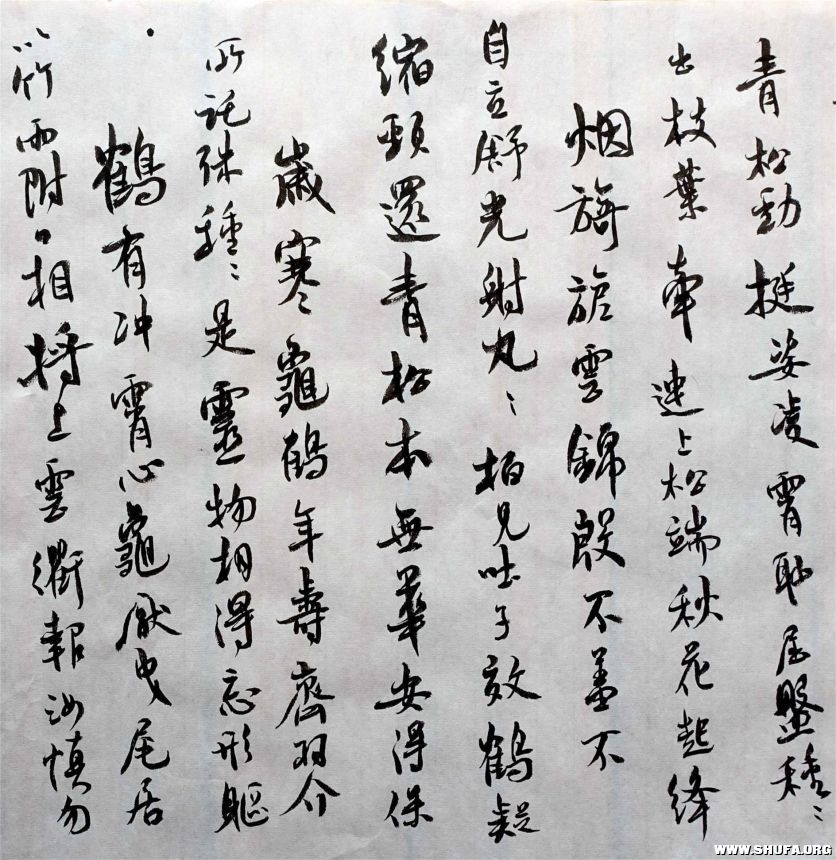 青松勁挺姿凌霄恥屈盤種〻
出枝葉牽連上松端秋花起絳
烟旖旎雲錦殷不羞不
自立舒光射丸〻柏見吐子效鶴疑
縮頸還青松本無華安得保
歲寒龜鶴年壽齊羽介
所託殊種〻是靈物相得忘形軀
鶴有冲霄心龜厭曳尾居
以竹兩附口相將上雲衢報汝慎勿
WWW.SHUFA.ORG